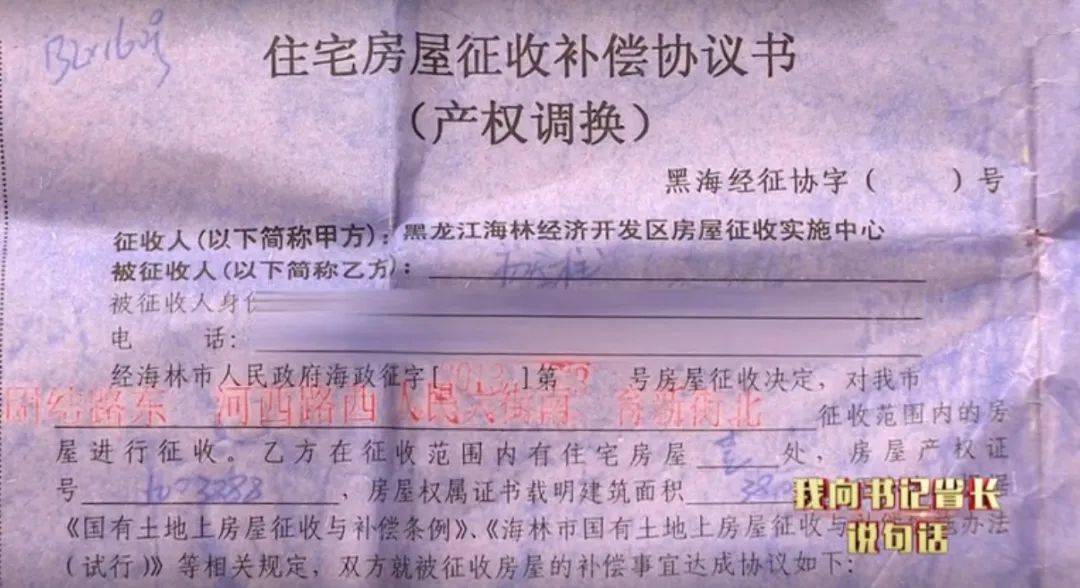 住宅房屋征收补偿协议书
（产权调换）
黑海经征协字（ ）号
征收人(以下简称甲方)：黑龙江海林经济开发区房屋征收实施中心
被征收人(以下简称乙方)：
被征收人身份
电 话：
经海林市人民政府海政征字[2013]第 号房屋征收决定，对我市
团结路东 河西路西 人民大街南 育新街北 征收范围内的房
屋进行征收。乙方在征收范围内有住宅房屋 壹 处，房屋产权证
号 ，房屋权属证书载明建筑面积
《国有土地上房屋征收与补偿条例》、《海林市国有土地上房屋征收与补偿 办法
(试行)》等相关规定，双方就被征收房屋的补偿事宜达成协议如下：
我向书记省长
说句话